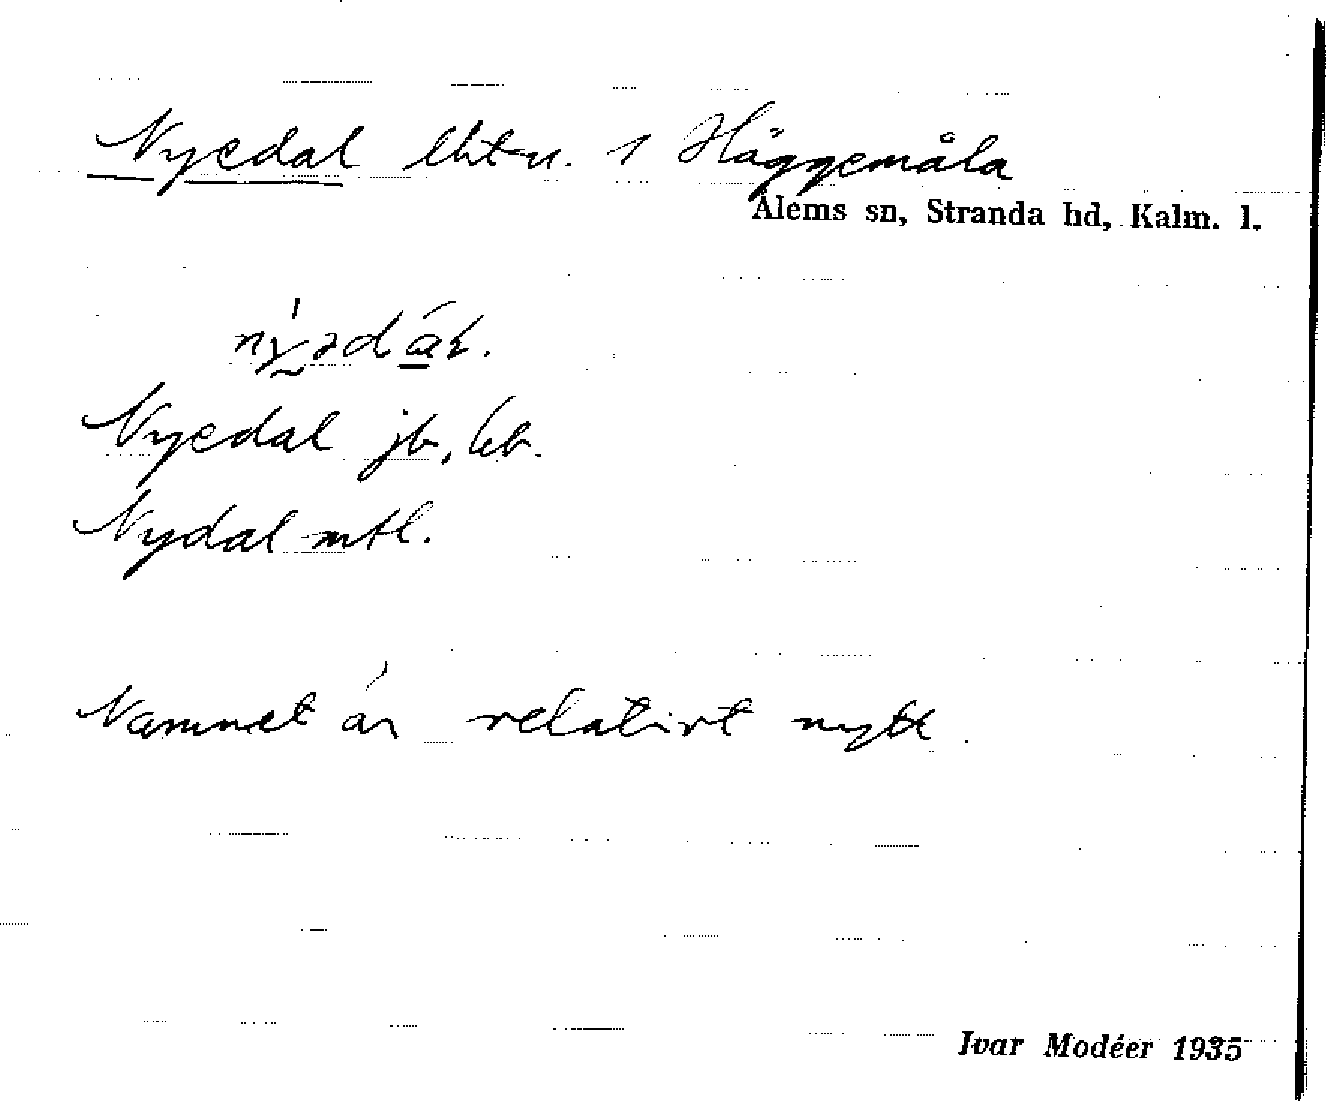 Nyedal lht u. 1 Häggemåla
Ålems sn, Stranda hd, Kalm. l.
Nyedal jb, kb.
Nydal mtl.
Namnet är relativt nytt.
Ivar Modéer 1935